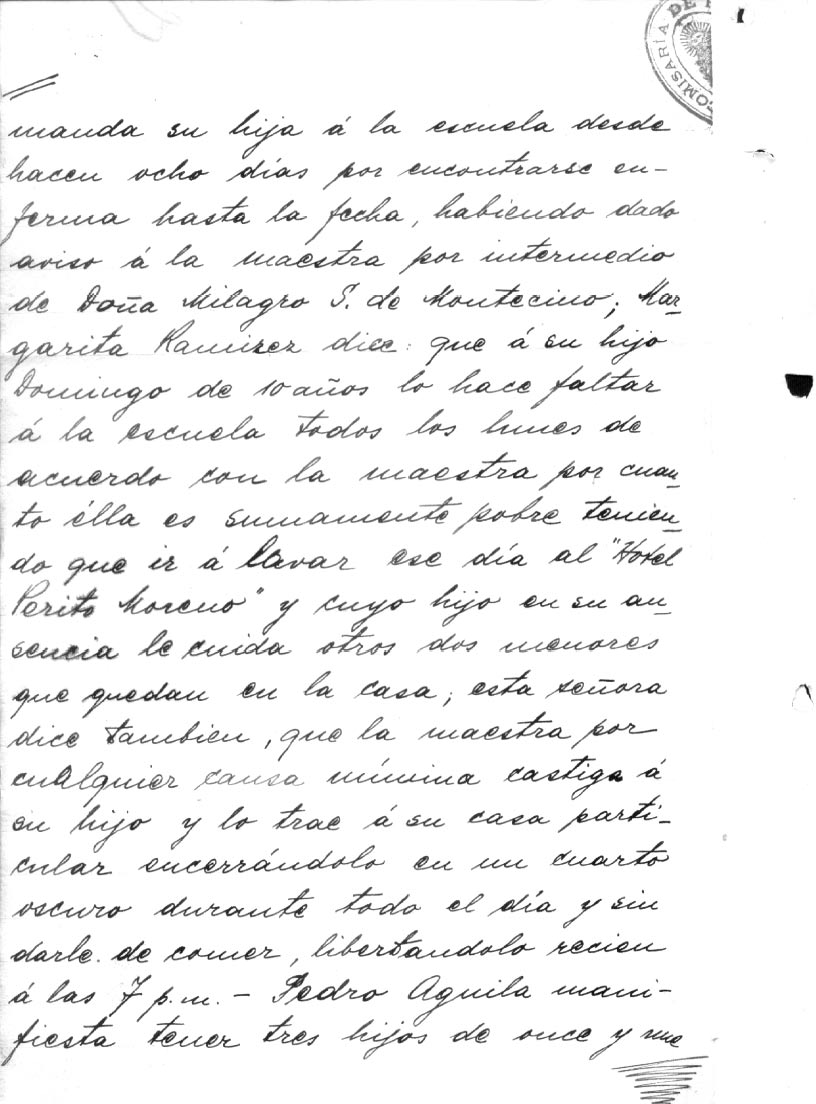 COMISARÍA DE
manda su hija á la escuela desde
hacen ocho días por encontrarse en-
ferma hasta la fecha, habiendo dado
aviso á la maestra por intermedio
de Doña Milagro S. de Montecino; Mar-
garita Ramirez dice: que á su hijo
Domingo de 10 años lo hace faltar
á la escuela todos los lunes de
acuerdo con la maestra por cuan-
to élla es sumamente pobre tenien-
do que ir á lavar ese día al "Hotel
Perito Moreno" y cuyo hijo en su au-
sencia le cuida otros dos menores
que quedan en la casa; esta señora
dice tambien, que la maestra por
cualquier causa mínima castiga á
su hijo y lo trae á su casa parti-
cular encerrándolo en un cuarto
oscuro durante todo el día y sin
darle de comer, libertandolo recien
á las 7 p.m. – Pedro Aguila mani-
fiesta tener tres hijos de once y nue